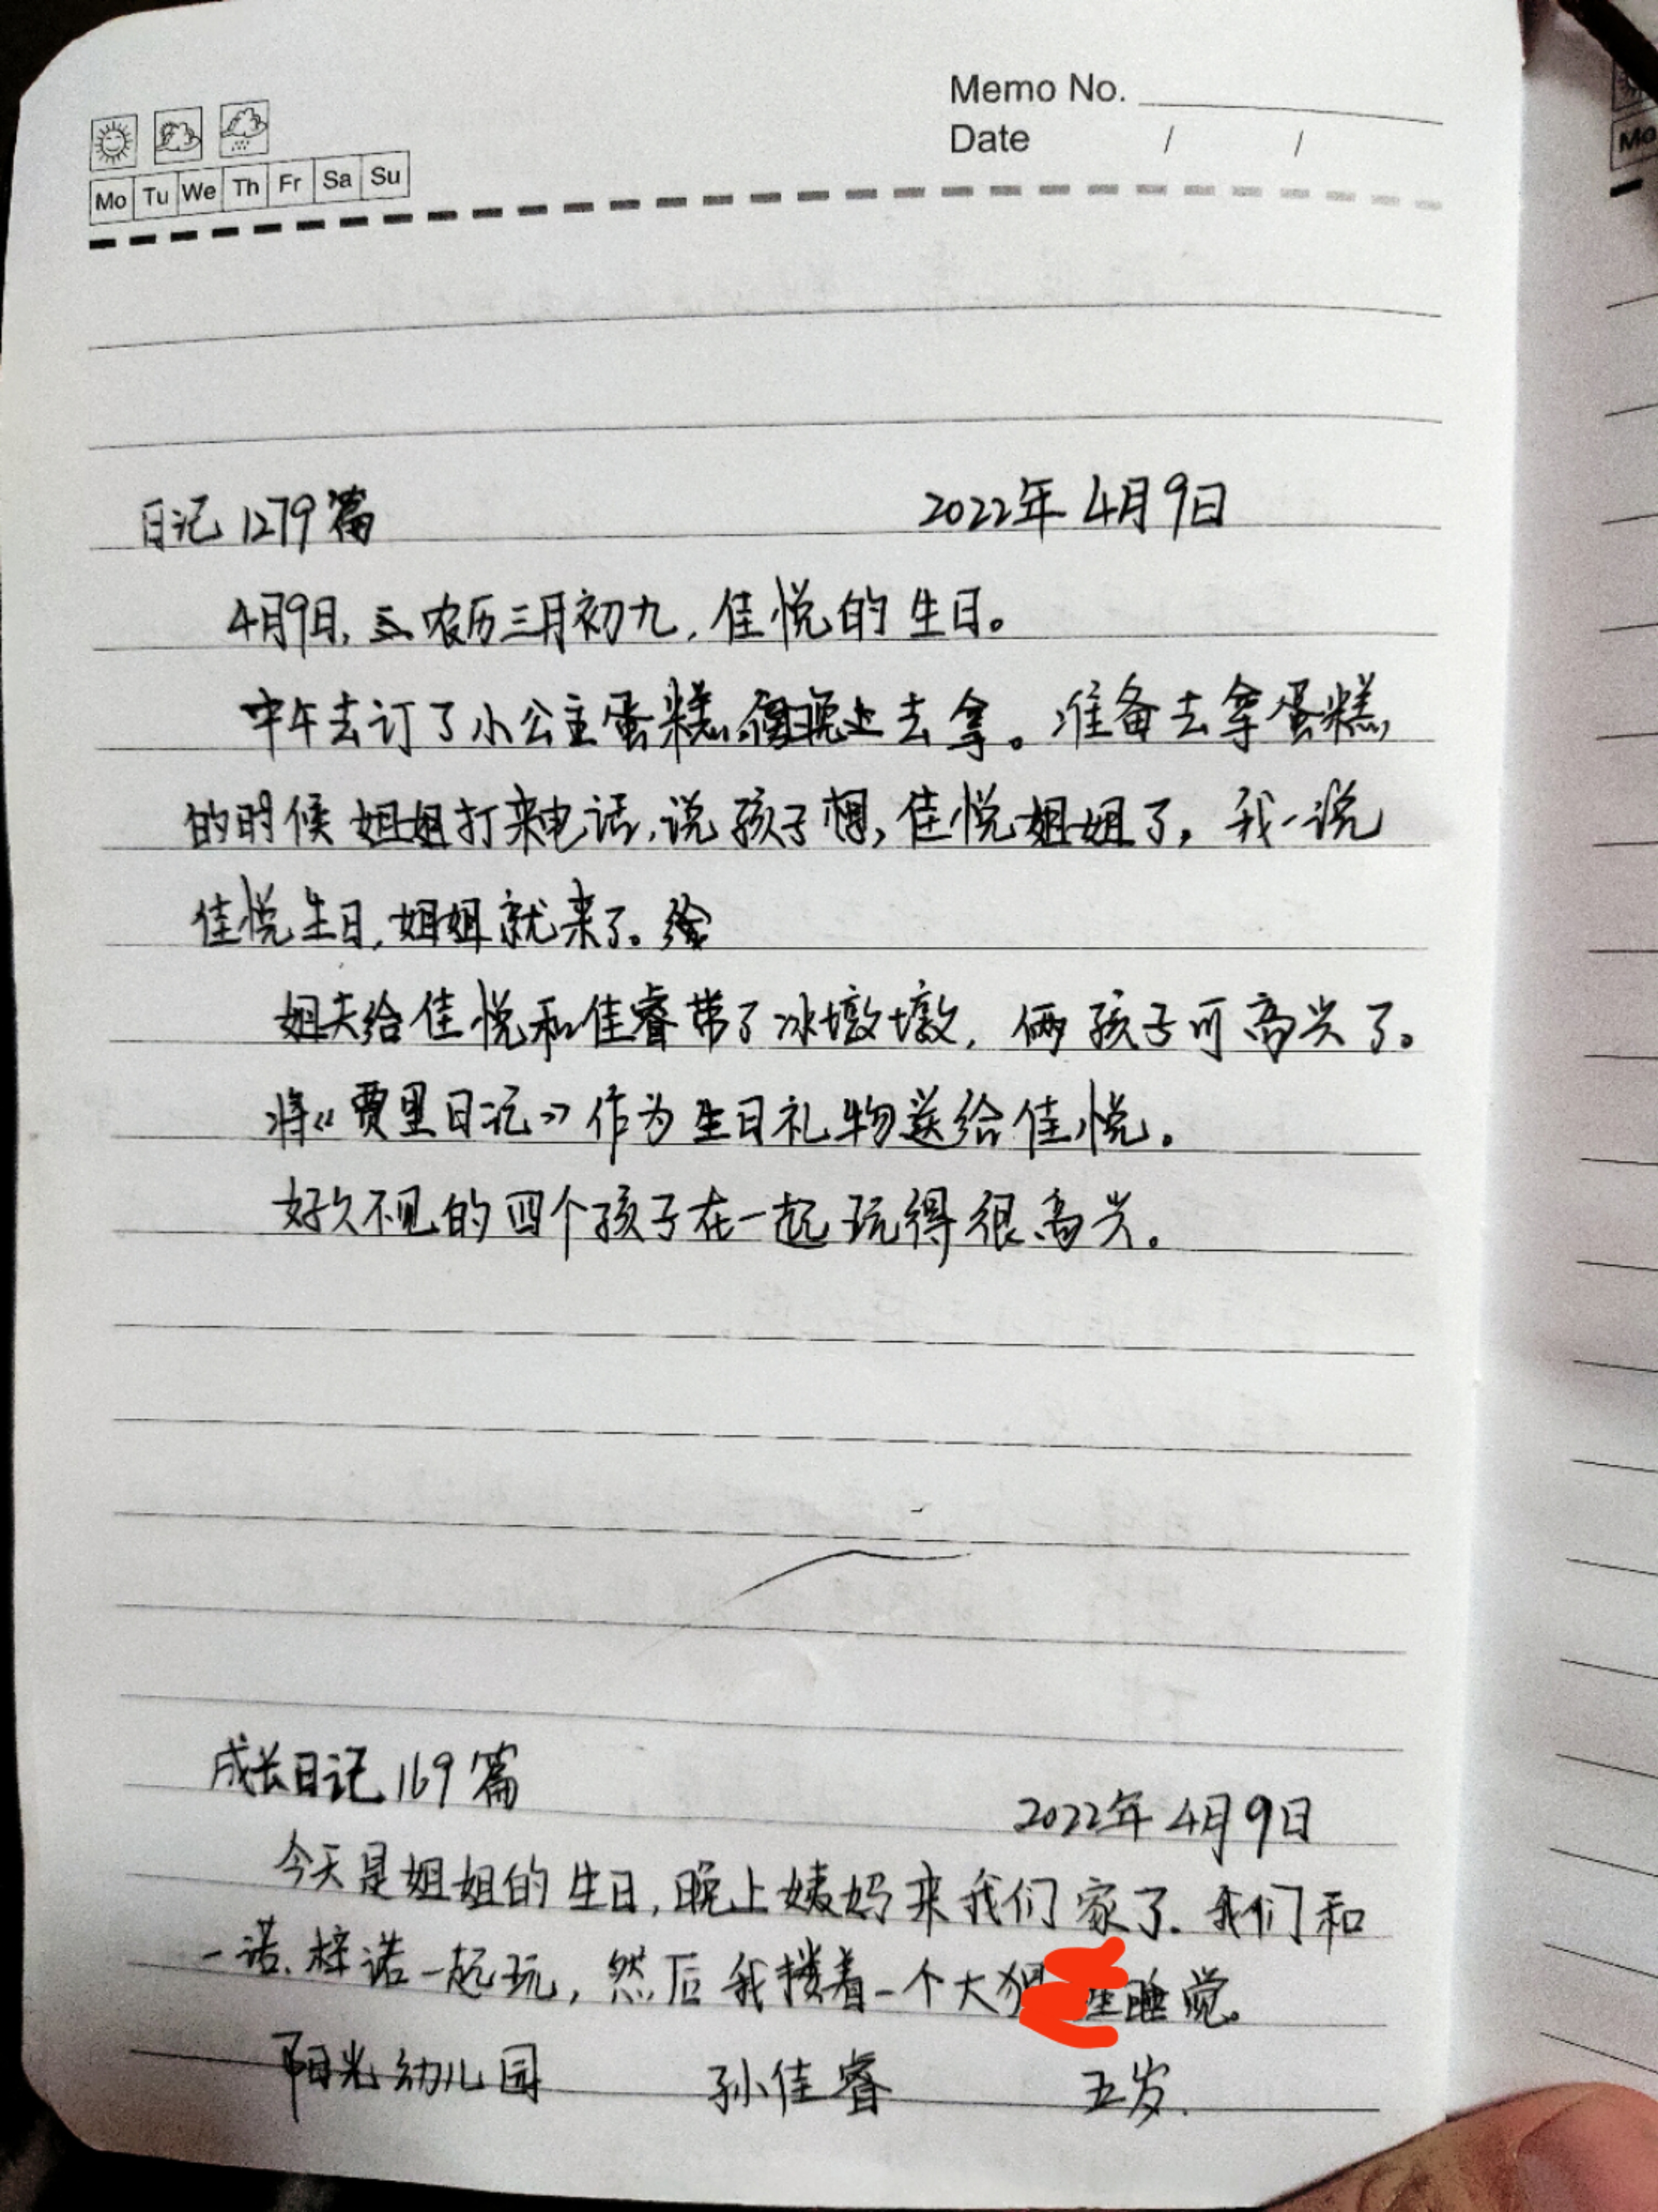 Memo No.
Date / /
Mo Tu We Th Fr Sa Su
Mo
日记1279篇 2022年4月9日
4月9日,农历三月初九,佳悦的生日。
中午去订了小公主蛋糕,晚上去拿。准备去拿蛋糕,
的时候姐姐打来电话,说孩子想,佳悦姐姐了,我一说
佳悦生日,姐姐就来了。
姐夫给佳悦和佳睿带了冰墩墩,俩孩子可高兴了。
将《贾里日记》作为生日礼物送给佳悦。
好久不见的四个孩子在一起玩得很高兴。
成长日记169篇
2022年4月9日
今天是姐姐的生日,晚上姨妈来我们家了.我们和
一诺.梓诺一起玩,然后我搂着一个大睡觉。
阳光幼儿园 孙佳睿 五岁.